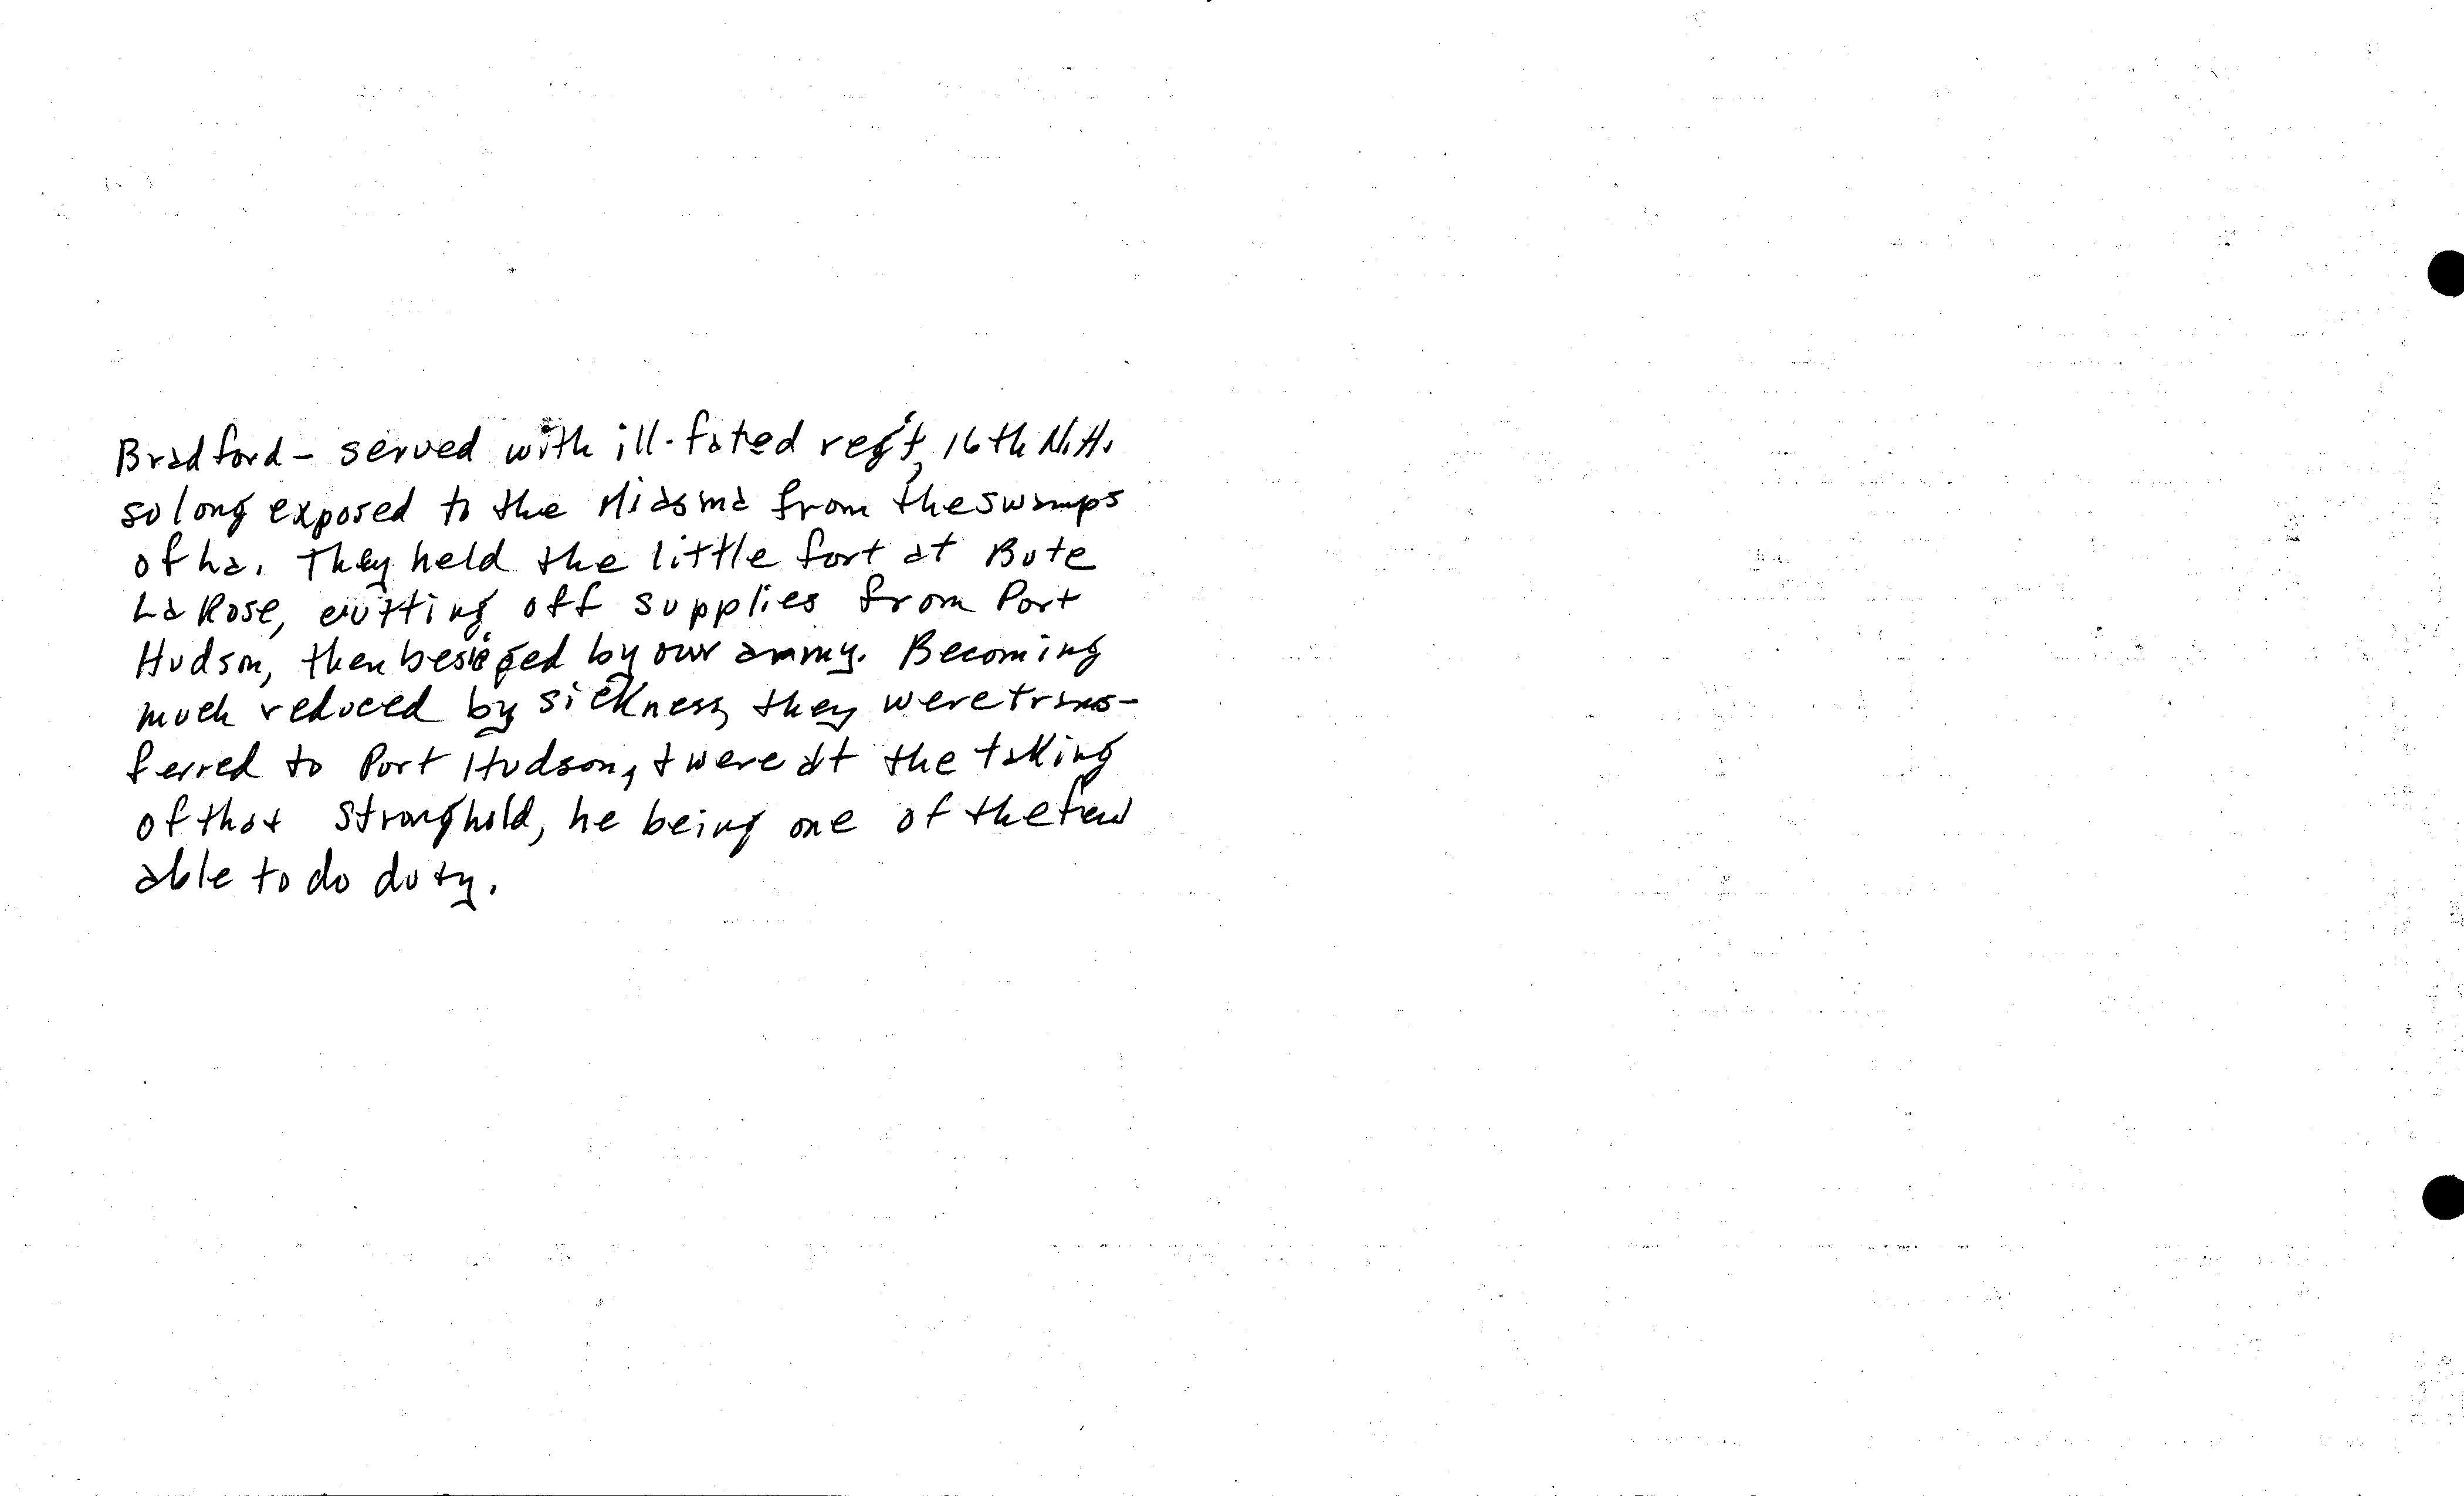 Bradford - served with ill-fated reg't, 16th N.H.
so long exposed to the Miasma from the swamps
of La. They held the little fort at Bute
La Rose, cutting off supplies from Port
Hudson, then besieged by our army. Becoming
much reduced by sickness, they were trans-
ferred to Port Hudson, & were at the taking
of that stronghold, he being one of the few
able to do duty.